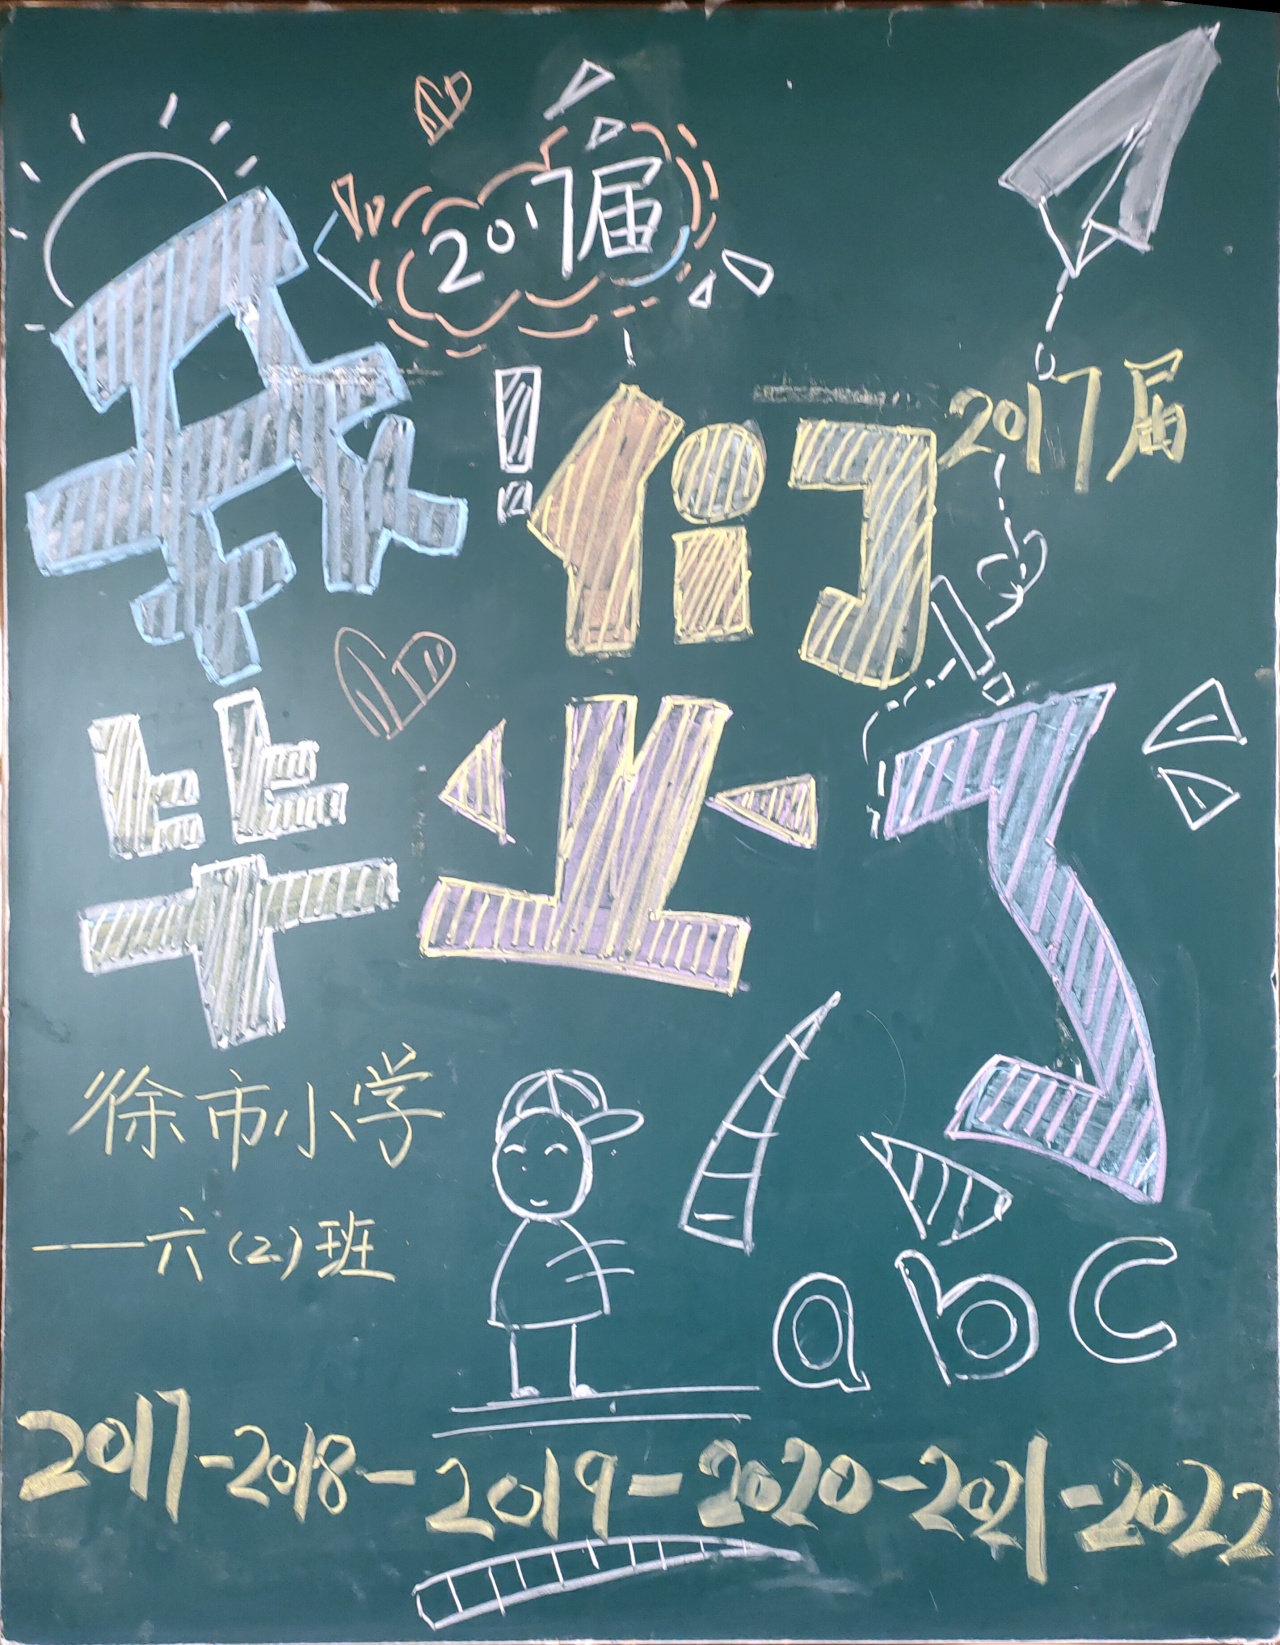 2017届
我们
2017届
毕业了
徐市小学
—六(2)班
abc
2017-2018-2019-2020-2021-2022